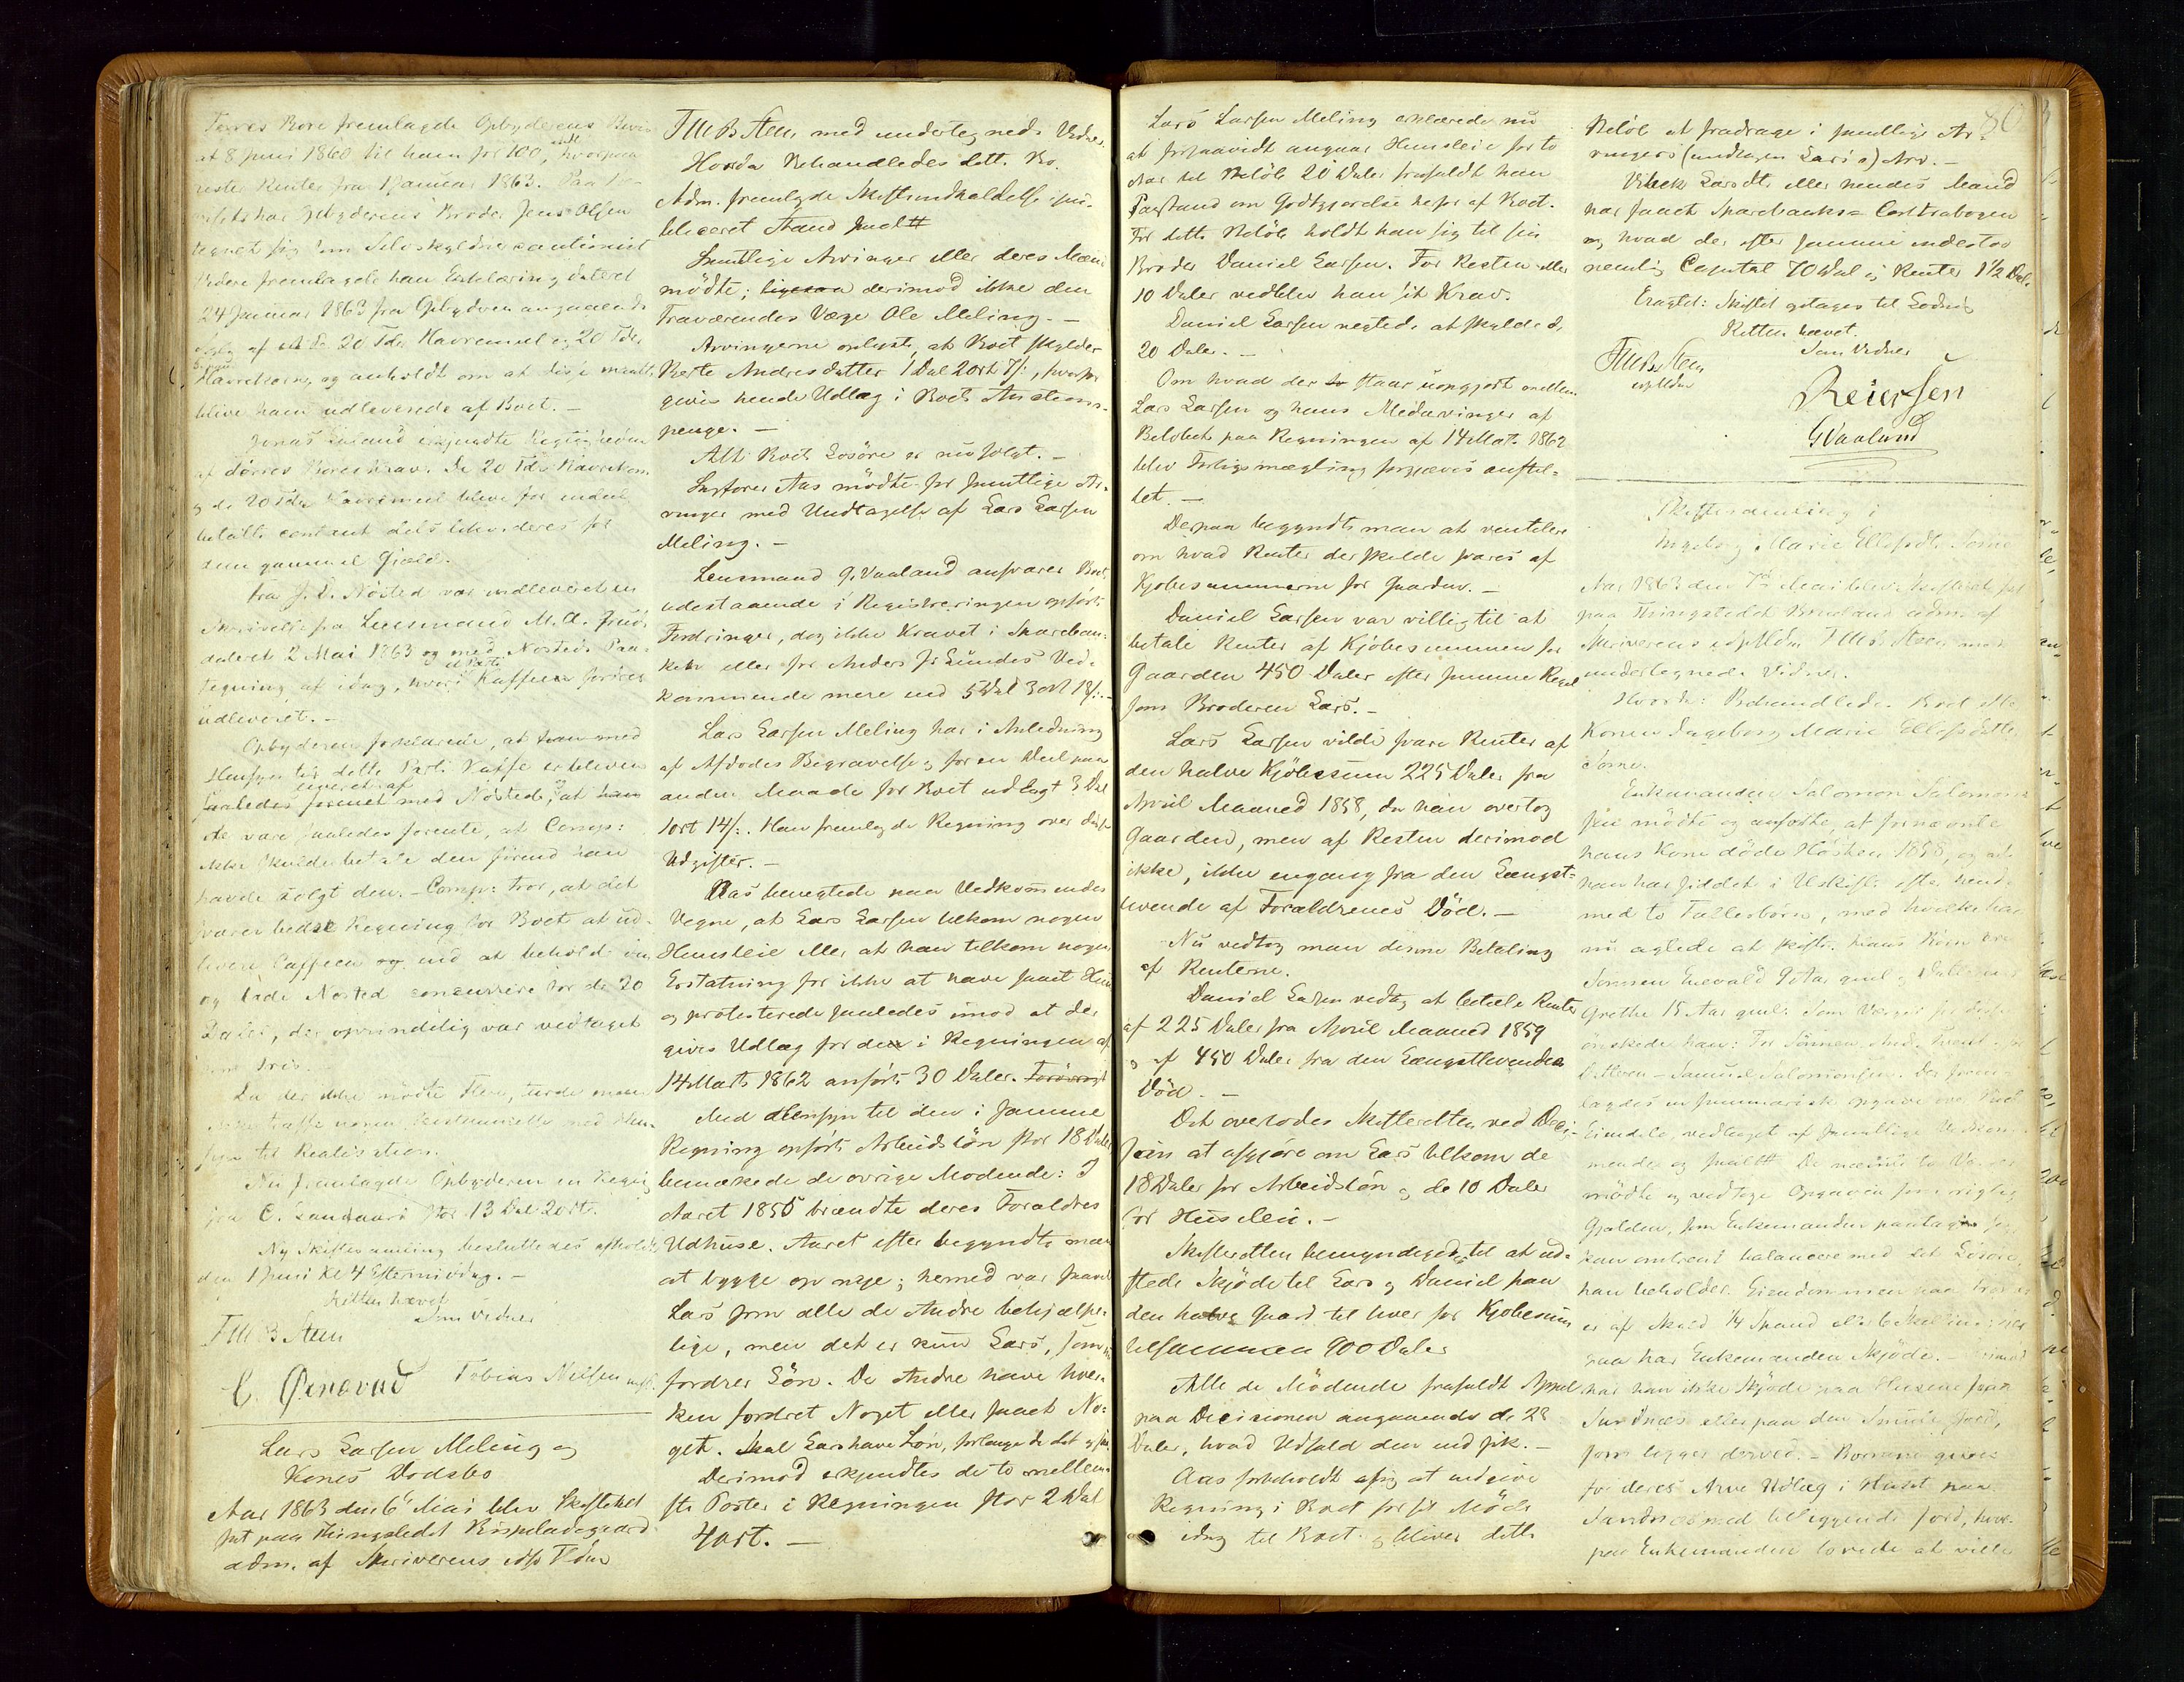 Torres Bore fremlagde Opbyderens Bevis
af 8 Juni 1860 til ham for 100, hvorpaa
rester Renter fra Januar 1863. Paa
har Opbyderens Broder Jens Olsen
tegnet sig som Selvskyldnercautionist
Videre fremlagde han Erklæring dateret
24 Januar 1863 fra Opbyderen angaaende
af 20 Tdr Havremeel og 20 Tdr
Havrekorn, og anholdt om at disse maatte
blive ham udleverede af Boet. –
Jonas erkjendte Rigtigheden
af Torres Bores Krav. De 20 Tdr Havrekorn
og de 20 Tdr Havremeel bleve for endeel
betalte contant dels likvideres for
sum gammel Gjæld.
Fra J. L. Nøsted var indleveret en
Skrivelse fra Leensmand M. A.
dateret 2 Mai 1863 og med Nøsteds Paa-
tegning af idag, hvori et Parti Kaffe fordres
udleveret. –
Opbyderen forklarede, at han med
Hensyn til dette Parti Kaffe er bleven
saaledes med Nøsted, at
de vare saaledes forente, at Comp:
ikke skulde betale den førend han
havde solgt den. – Comp: tror, at det
være bedst Regning for Boet at ud-
levere Caffeen end at beholde den
og lade Nøsted concurrere for de 20
Daler, der oprindelig var vedtaget
Da der ikke mødte Flere, turde man
ikke træffe nogen Bestemmelse med Hen-
syn til Realisation.
Nu fremlagde Opbyderen en Regning
fra C. Sandaas stor 13 Dal 2 ort.
Ny Skiftesamling besluttedes afholdt
den 1 Juni Kl 4 Eftermiddag. –
Retten hævet
F M B Steen
Som Vidner
C. Øenevad Tobias Nilsen
Lars Larsen Meling og
Kones Dødsbo
Aar 1863 den 6te Mai blev Skifteret
sat paa Thingstedet Bispeladegaard
adm. af Skriverens edsv. Fldm
F M B Steen med undertegnede Vidner.
Hvorda Behandledes dett. Bo.
Adm. fremlagde Skiftesindkaldelse pu-
bliceret Aand
Samtlige Arvinger eller deres Mænd
mødte; ligesaa derimod ikke den
Fraværendes Værge Ole Meling. –
Arvingerne oplyste, at Boet skylder
Berte Andresdatter 1 Dal 2 ort 7 s:, hvorfor
gives hende Udlæg i Boets Auctions-
penge. –
Alt Boets Løsøre er nu solgt. –
Sagfører Aas mødte for samtlige Ar-
vinger med Undtagelse af Lars Larsen
Meling. –
Lensmand G. Vaaland ansvarer Boets
udestaaende i Registreringen opførte
Fordringer, dog ikke Kravet i Sparebanken
eller for Anders Js Lundes Ved-
kommende mere end 5 Dal 3 ort 18 s: –
Lars Larsen Meling har i Anledning
af Afdødes Begravelse og for en Deel paa
anden Maade for Boet udlagt 3 Dal
1 ort 14 s:. Han fremlagde Regning over disse
Udgifter. –
Aas benegtede paa Vedkommendes
Vegne, at Lars Larsen tilkom nogen
Huusleie eller at han tilkom nogen
Erstatning for ikke at have faaet Huus
og protesterede saaledes imod at der
gives Udlæg for den i Regningen af
14 Marts 1862 anførte 30 Daler. Forøvrigt
Med Hensyn til den i samme
Regning opførte Arbeidsløn stor 18 Daler
bemærkede de øvrige Mødende: I
Aaret 1855 brændte deres Forældres
Udhuse. Aaret efter begyndte man
at bygge op nye; hermed var saavel
Lars som alle de Andre behjælpe-
lige, men det er kun Lars, som nu
fordrer Løn. De Andre have hver-
ken fordret Noget eller faaet No-
get. Skal Lars have Løn, forlange de det
Derimod erkjendtes de to mellem-
ste Poster i Regningen stor 2 Dal
4 ort. –
Lars Larsen Meling erklærede nu
at forsaavidt angaar Huusleie for to
Aar til Beløb 20 Daler frafaldt han
Paastand om Godtgjørelse herfor af Boet.
For dette Beløb holdt han sig til sin
Broder Daniel Larsen. For Resten eller
10 Daler vedblev han sit Krav.
Daniel Larsen negtede at skylde de
20 Daler. –
Om hvad der staar uopgjort mellem
Lars Larsen og hans Medarvinger af
Beløbet paa Regningen af 14 Mat. 1862
blev Forligsmægling forgjæves anstil-
let. –
Derpaa begyndte man at ventilere
om hvad Renter der skulde svares af
Kjøbesummerne for Gaarden. –
Daniel Larsen var villig til at
betale Renter af Kjøbesummen for
Gaarden 450 Daler efter samme Regel
som Broderen Lars. –
Lars Larsen vilde svare Renter af
den halve Kjøbesum 225 Daler fra
April Maaned 1858, da han overtog
Gaarden, men af Resten derimod
ikke, ikke engang fra den Længst-
levende af Forældrenes Død. –
Nu vedtog man denne Betaling
af Renterne.
Daniel Larsen vedtog at betale Renter
af 225 Daler fra April Maaned 1859
og af 450 Daler fra den Længstlevendes
Død. –
Det overlodes Skifteretten ved Deci-
sion at afgjøre om Lars tilkom de
18 Daler for Arbeidsløn og de 10 Daler
for Huusleie. –
Skifteretten bemyndigedes til at ud-
stede Skjøde til Lars og Daniel paa
den halve Gaard til hver for Kjøbesum
tilsammen 900 Daler
Alle de Mødende frafaldt Appel
paa Decisionen angaaende de 28
Daler, hvad Udfald den end fik. –
Aas forbeholdt sig at indgive
Regning i Boet for sit Møde
idag til Boet og bliver dette
80
Beløb at fradrage i samtlige Ar-
vingers (undtagen Lars's) Arv. –
Vibeke Larsdtr eller hendes Mand
har faaet Sparebanks-Contrabogen
og hvad der efter samme indestod
nemlig Capital 70 Dal og Renter 1 1/2 Dal.
Eragtet: Skiftet optages til Lodning
Retten hævet.
Som Vidner
F M B Steen
Reiersen
G Vaaland
Skiftesamling i
Ingeborg Marie Ellefsdtr
Aar 1863 den 7de Mai blev Skifteret sat
paa Thingstedet adm. af
Skriverens edsv. Fldm. F M B Steen med
undertegnede Vidner.
Hvorda: Behandledes Boet efter
Konen Ingeborg Marie Ellefsdatter
Enkemanden Salomon Salomon-
sen mødte og anførte, at fornævnte
hans Kone døde Høsten 1858, og at
han har siddet i Uskifte efter hende
med to Fællesbørn, med hvilke han
nu agtede at skifte. Hans Børn ere
Sønnen Enevald 9 Aar gml og Datteren
Grethe 15 Aar gml. Som Værger for disse
ønskede han: For Sønnen
Datteren – Samuel Salomonsen. Der frem-
lagdes en summarisk Opgave over Boets
Eiendele vedtaget af samtlige Vedkom-
mende og De nævnte to Værger
mødte og vedtoge Opgaven som rigtig
Gjælden, som Enkemanden paatager sig
kan omtrent balancere med det Løsøre,
han beholder. Eiendommen paa
er af Skyld 1/4 Spand eller 6 Skilling; her-
paa har Enkemanden Skjøde. –
har han ikke Skjøde paa Husene paa
Sandnæs eller paa den Smule Jord,
som ligger derved. – Børnene gives
for deres Arv Udlæg i Huset paa
Sandnæs med tilliggende Jord, hvor-
paa Enkemanden lovede at ville